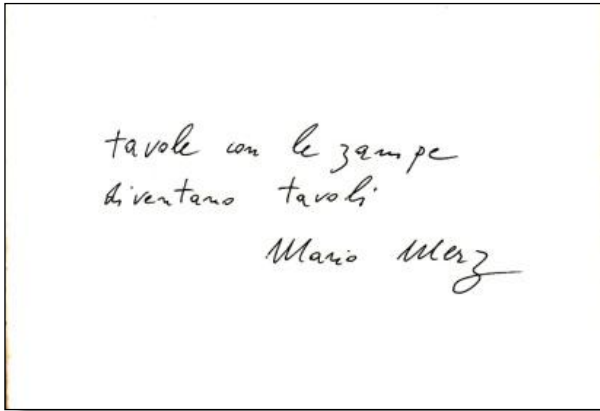 tavole con le zampe
diventano tavoli
Mario Merz